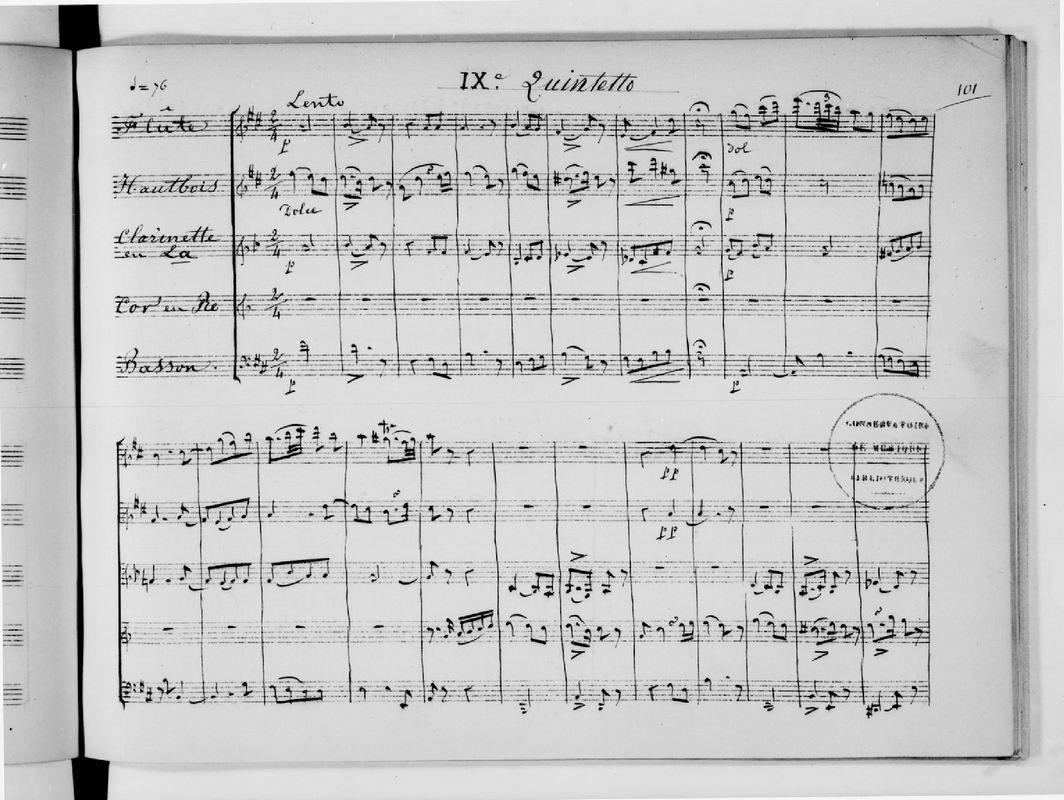 ♩= 76
IXe. Quintetto
101
Lento
Flûte
p
dol
Hautbois
Dolce
p
Clarinette
en La
p
p
Cor en Re
Basson.
p
p
tr
pp
pp
CONSERVATOIRE
DE MUSIQUE
BIBLIOTHEQUE